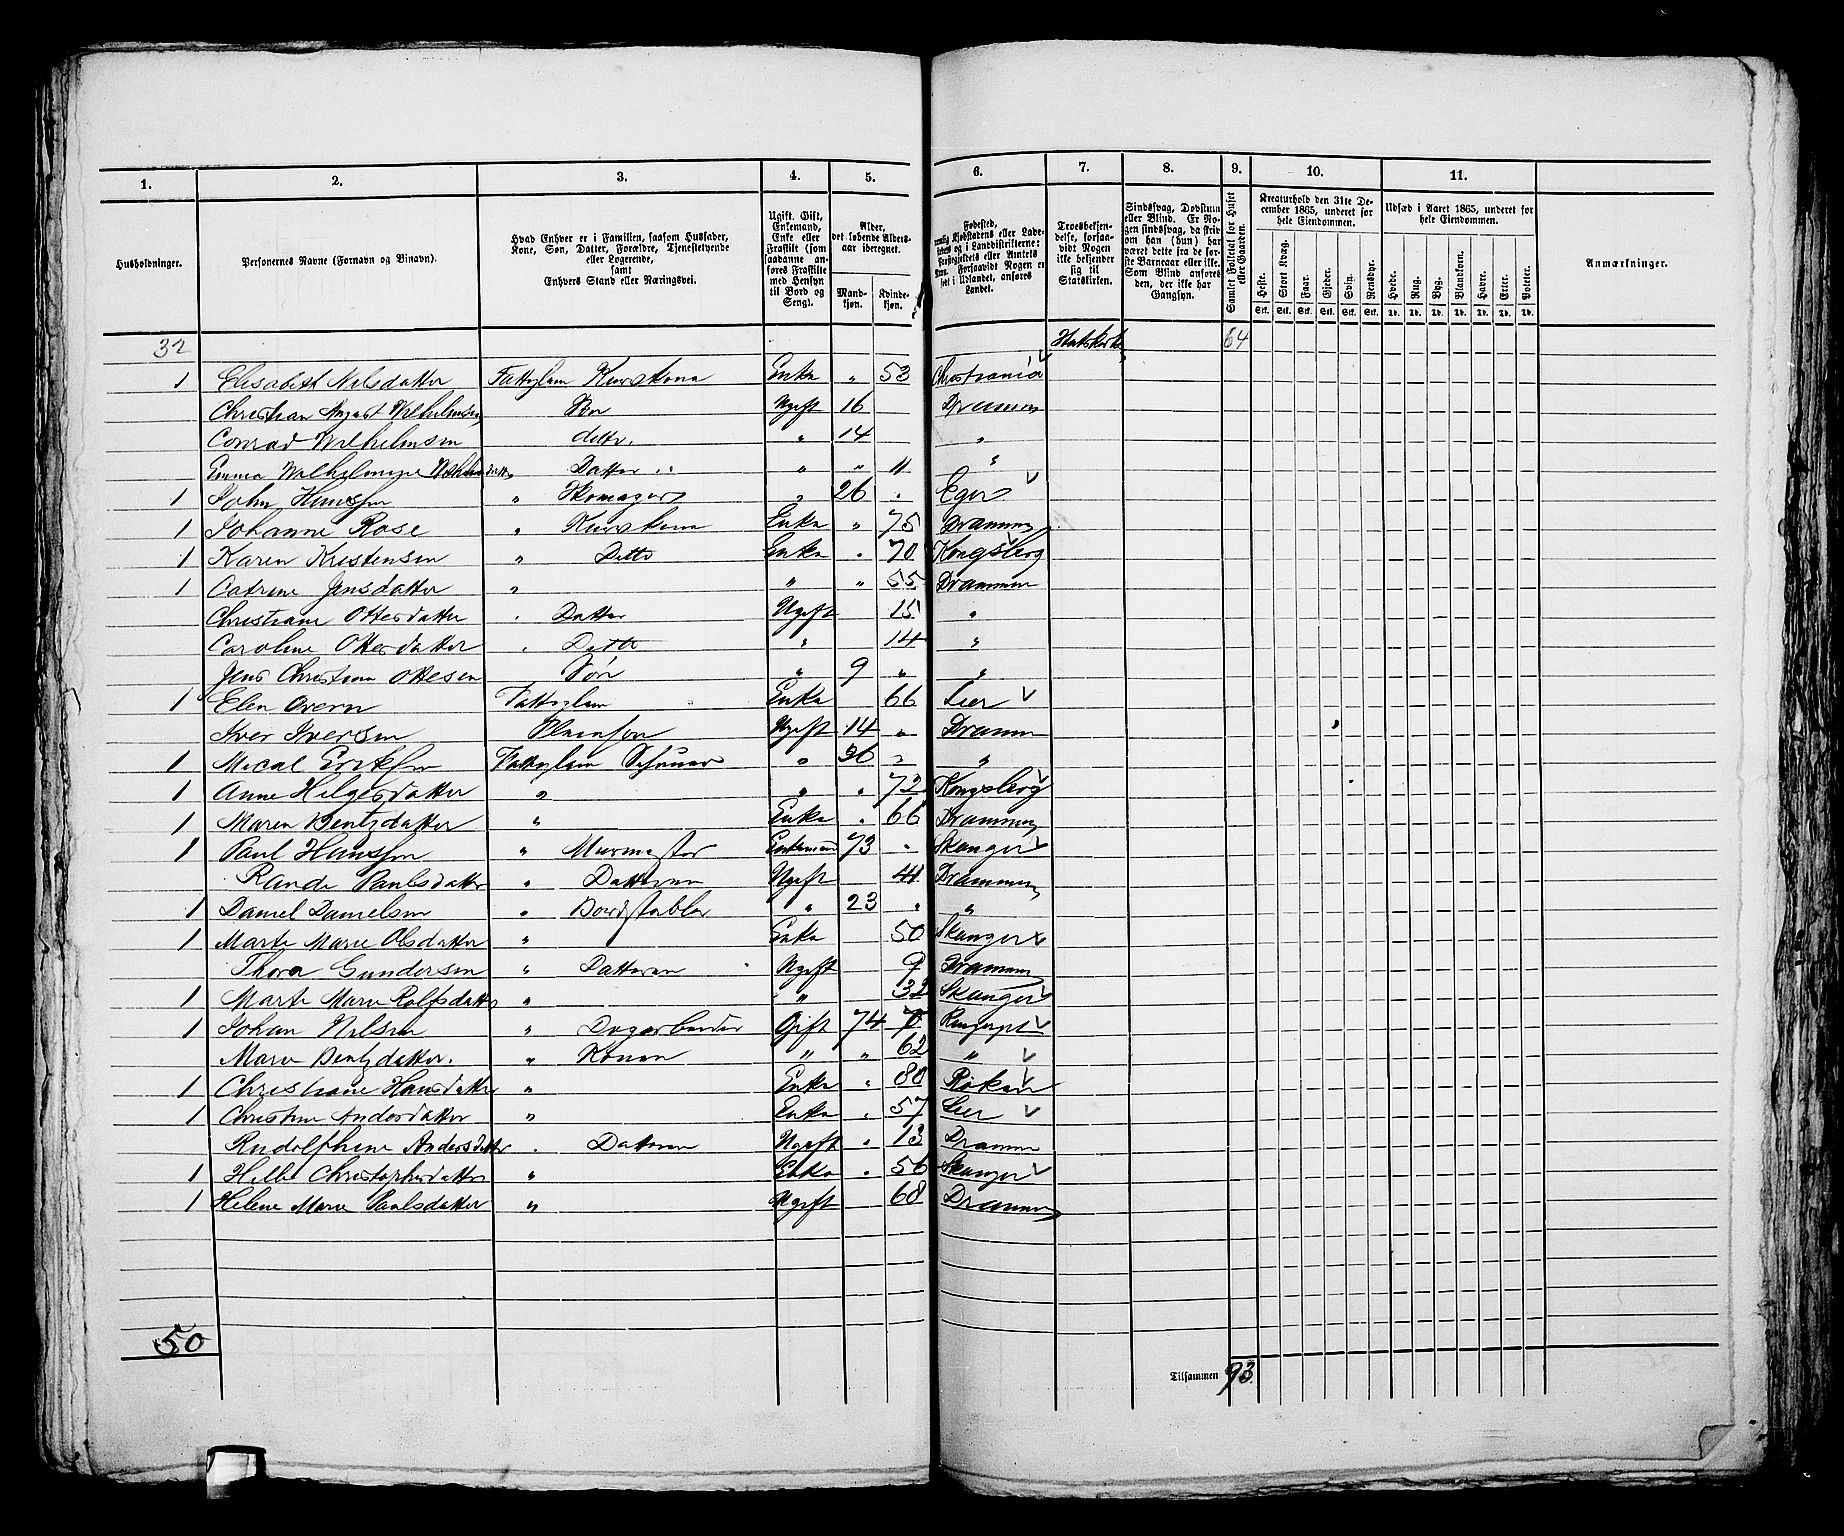 1. 2. 3. 4. 5. 6. 7. 8. 9. 10. 11.
Husholdninger.
Personernes Navne (Fornavn og Tilnavn).
Hvad Enhver er i Familien, saasom Husfader, Kone, Søn, Datter, Forældre, Tjenestetyende eller Logerende, samt Enhvers Stand eller Næringsvei.
Ugift, Gift, Enkemand, Enke eller Fraskilt (som saadanne anføres Fraskilte med Hensyn til Bord og Seng).
Alder, det løbende Alders-aar iberegnet.
Mand-kjøn. Kvinde-kjøn.
Fødested,
født i Udlandet, anføres Landet.
Troesbekjen-delse, forsaa-vidt Nogen ikke bekjender sig til Statskirken.
Sindssvag, Døvstum eller Blind. Er No-gen sindssvag, da skriv om han (hun) har været dette fra de før-ste Barneaar eller ikke. Som Blind anføres den, der ikke har Gangsyn.
Samlet Folketal for Huset eller Gaarden.
Kreaturhold den 31te De-cember 1865, underet før hele Eiendommen.
Heste. Stort Kvæg. Faar. Gjeder. Svin. Rensdyr.
Stk. Stk. Stk. Stk. Stk. Stk.
Udsæd i Aaret 1865, underet før hele Eiendommen.
Hvede. Rug. Byg. Blandkorn. Havre. Erter. Poteter.
Td. Td. Td. Td. Td. Td. Td.
Anmærkninger.
32 64
1 Elisabeth Nilsdatter Enke " 53 Christiania
Christian August Wilhelmsen Søn Ugift 16 Drammen
Conrad Wilhelmsen ditto " 14 "
Emma Wilhelmine Datter " " 11 "
1 John Hansen " Skomager " 26 Eger
1 Johanne Rose " Enke " 75 Drammen
1 Karen Kristensen " Ditto Enke " 70 Kongsberg
1 Catrine Jensdatter " " " 55 Drammen
Christiane Ottersdatter " Datter Ugift 15 "
Caroline Ottersdatter " Ditto " 14 "
Jens Christian Ottesen Søn " 9 " "
1 Elen Overn Enke 66 Lier
Iver Iversen Ugift 14 " Drammen
1 Mical Eriksen " 36 " "
1 Anne Helgesdatter " " " 72 Kongsberg
1 Maren Bentzdatter " Enke " 66 Drammen
1 Paul Hansen " Murmester Enkemand 73 " Skanger
Rande Paulsdatter " Datteren Ugift 41 Drammen
1 Daniel Danielsen " Bordstabler " 23 " "
1 Marte Marie Olsdatter " Enke 50 Skanger
Thora Gundersen " Datteren Ugift 9 Drammen
1 Marte Marie Rolfsdatter " " 32 Skanger
1 Johan Nilsen " Dagarbeider Gift 74
Marie Bentzdatter. " Konen " " 62 "
1 Christiane Hansdatter " Enke " 80 Røken
1 Christine Andersdatter " Enke " 57 Lier
Rudolphine Andersdatter " Datteren Ugift " 13 Drammen
1 Helle Christophersdatter " Enke " 56 Skanger
1 Helene Marie Paulsdatter " Ugift 68 Drammen
50
Tilsammen 93